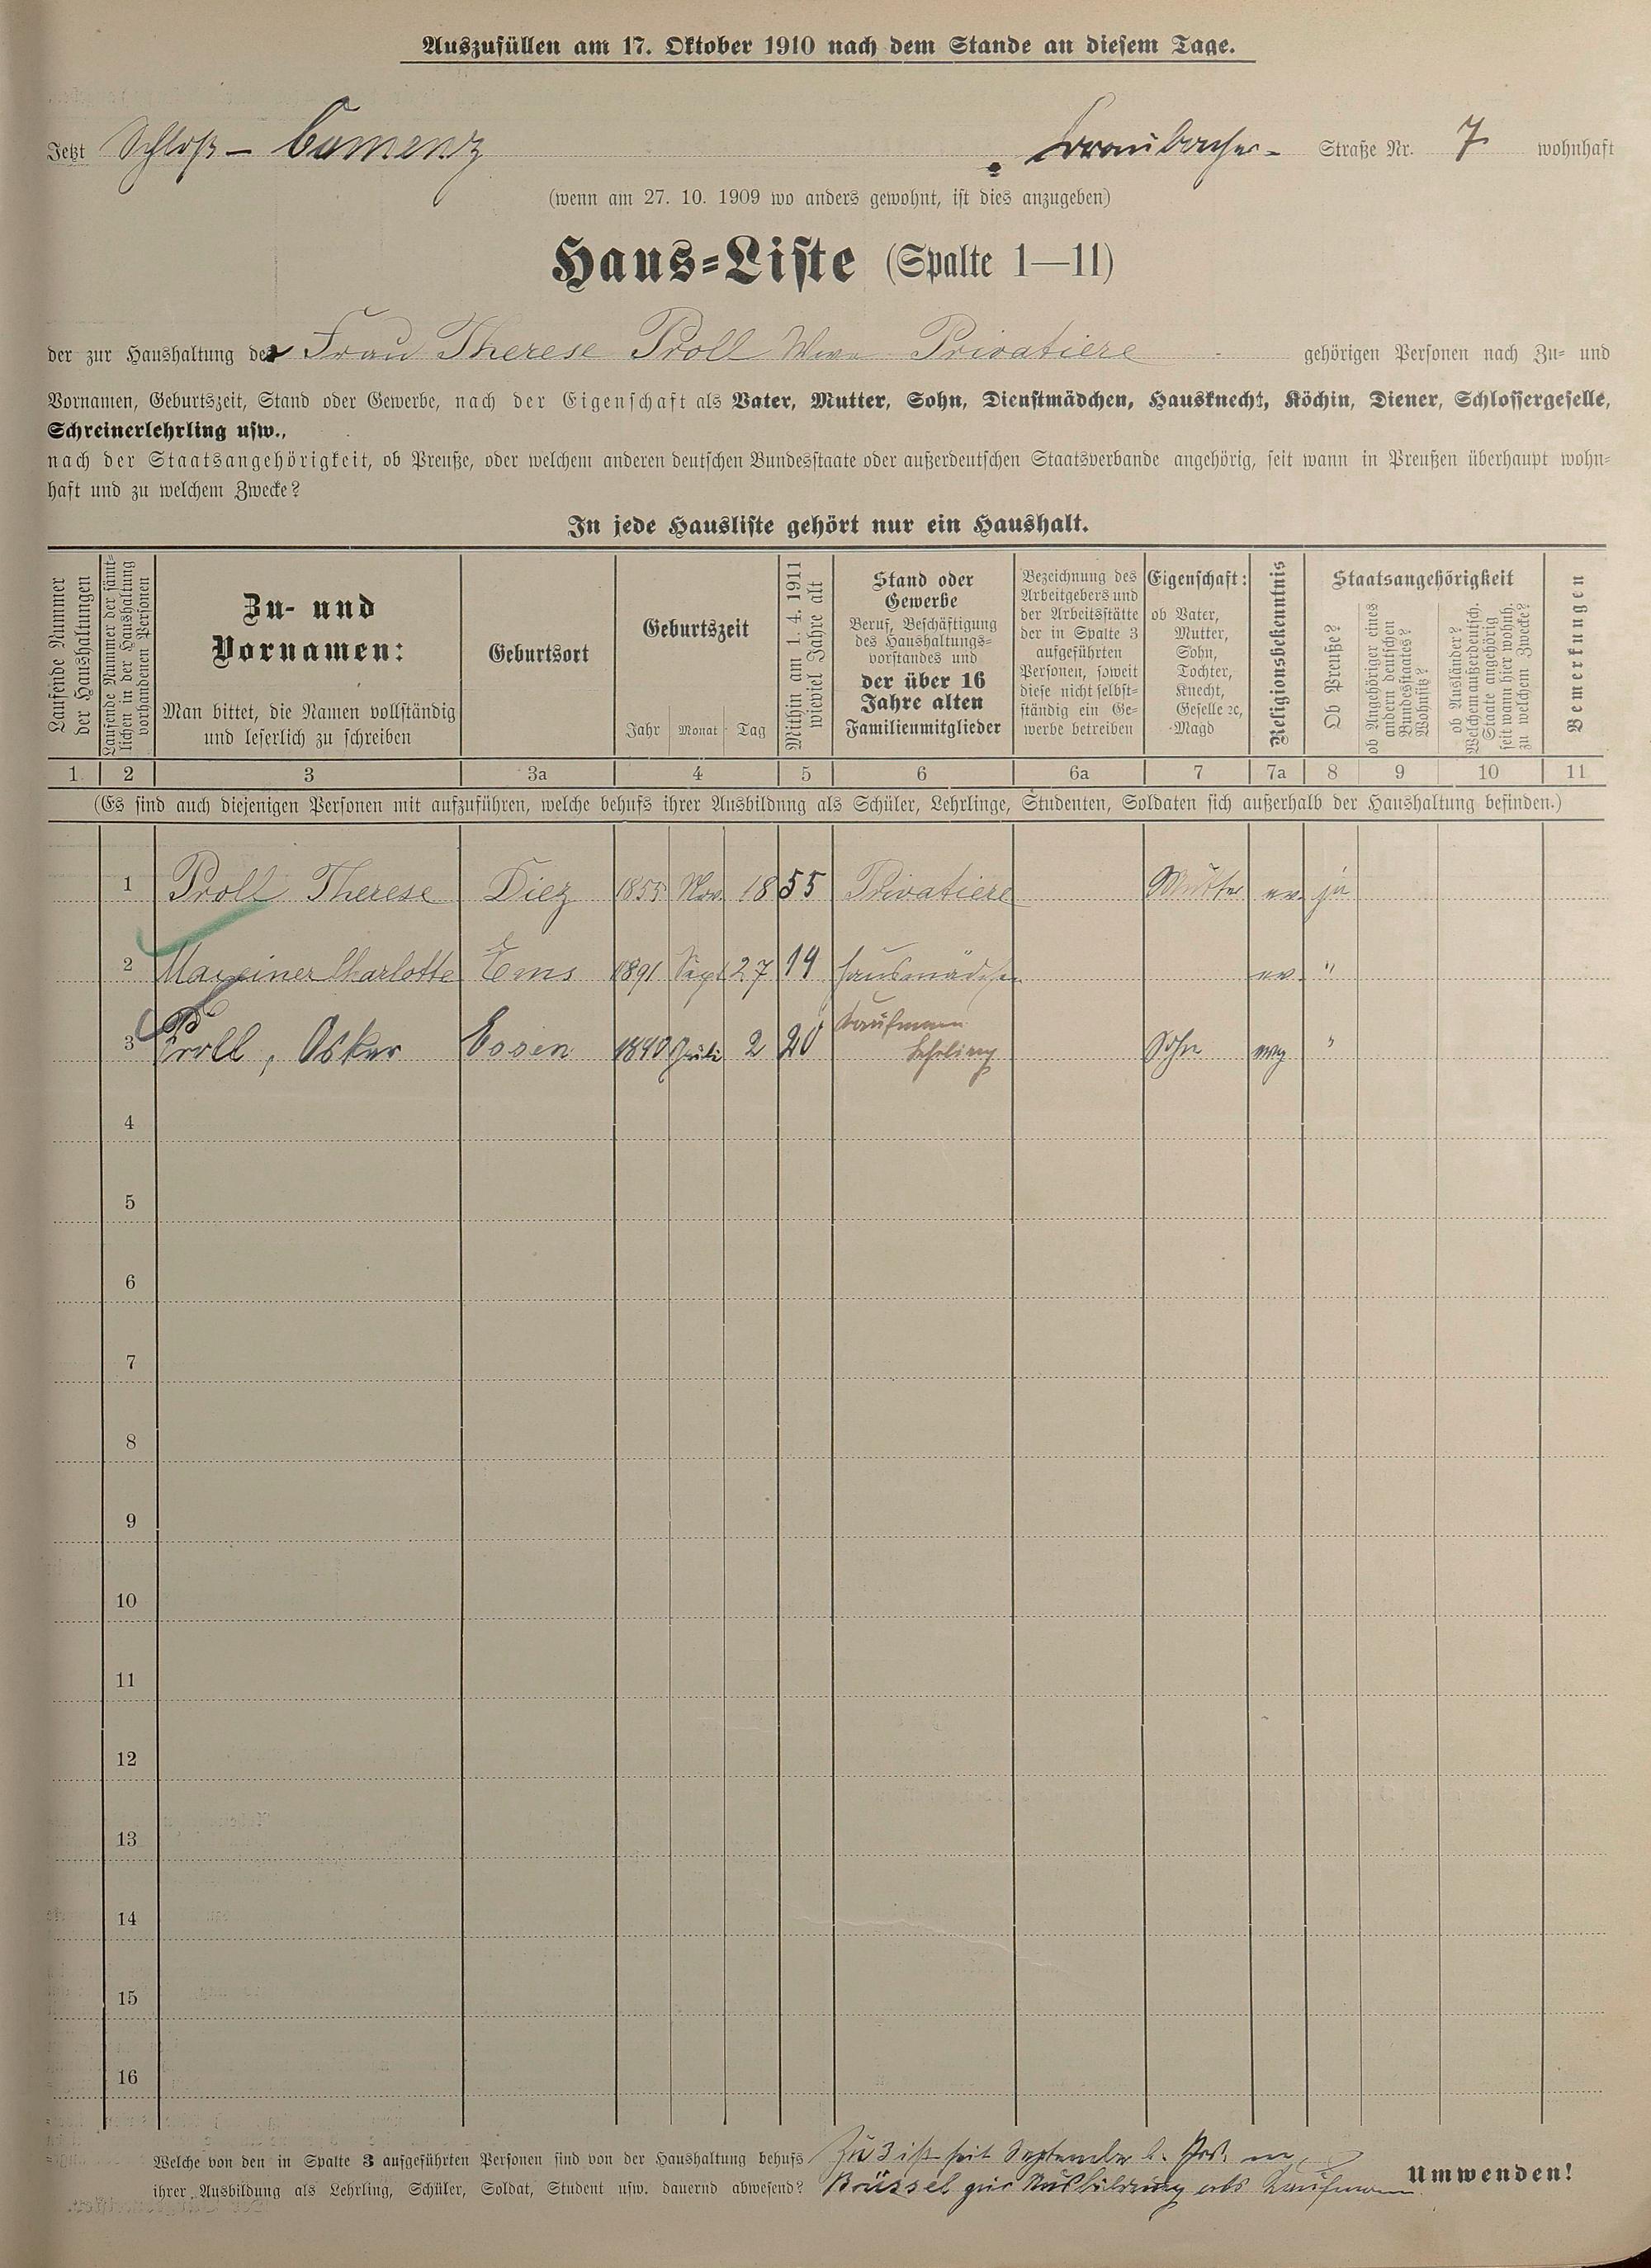 Auszufüllen am 17. Oktober 1910 nach dem Stande an diesem Tage.
Jetzt Schloß – Camenz Braubacher- Straße Nr. 7 wohnhaft
(wenn am 27. 10. 1909 wo anders gewohnt, ist dies anzugeben)
Haus-Liste (Spalte 1—11)
der zur Haushaltung der Frau Therese Proll Wwe Privatiere gehörigen Personen nach Zu- und
Vornamen, Geburtszeit, Stand oder Gewerbe, nach der Eigenschaft als Vater, Mutter, Sohn, Dienstmädchen, Hausknecht, Köchin, Diener, Schlossergeselle,
Schreinerlehrling usw.,
nach der Staatsangehörigkeit, ob Preuße, oder welchem anderen deutschen Bundesstaate oder außerdeutschen Staatsverbande angehörig, seit wann in Preußen überhaupt wohn-
haft und zu welchem Zwecke?
In jede Hausliste gehört nur ein Haushalt.
Laufende Nummer
der Haushaltungen
Laufende Nummer der sämt-
lichen in der Haushaltung
vorhandenen Personen
Zu- und
Vornamen:
Man bittet, die Namen vollständig
und leserlich zu schreiben
Geburtsort
Geburtszeit
Jahr Monat Tag
Mithin am 1. 4. 1911
wieviel Jahre alt
Stand oder
Gewerbe
Beruf, Beschäftigung
des Haushaltungs-
vorstandes und
der über 16
Jahre alten
Familienmitglieder
Bezeichnung des
Arbeitgebers und
der Arbeitsstätte
der in Spalte 3
aufgeführten
Personen, soweit
diese nicht selbst-
ständig ein Ge-
werbe betreiben
Eigenschaft:
ob Vater,
Mutter,
Sohn,
Tochter,
Knecht,
Geselle ꝛc,
Magd
Religionsbekenntnis
Staatsangehörigkeit
Ob Preuße?
ob Angehöriger eines
andern deutschen
Bundesstaates?
Wohnsitz?
ob Ausländer?
Welchem außerdeutsch.
Staate angehörig
seit wann hier wohnh.
zu welchem Zwecke?
Bemerkungen
1 2 3 3a 4 5 6 6a 7 7a 8 9 10 11
(Es sind auch diejenigen Personen mit aufzuführen, welche behufs ihrer Ausbildung als Schüler, Lehrlinge, Studenten, Soldaten sich außerhalb der Haushaltung befinden.)
1 Proll Therese Diez 1855 Nov. 18 55 Privatiere Mutter ev. ja
2 Charlotte Ems 1891 Sept 27 19 Hausmädchen ev. "
3 Proll, Oskar Essen 1890 Juli 2 20 Kaufmann Lehrling Sohn evg "
4
5
6
7
8
9
10
11
12
13
14
15
16
Welche von den in Spalte 3 aufgeführten Personen sind von der Haushaltung behufs Zu 3 ist seit September d. in
ihrer Ausbildung als Lehrling, Schüler, Soldat, Student usw. dauernd abwesend? Brüssel zur Ausbildung als Kaufmann.
Umwenden!